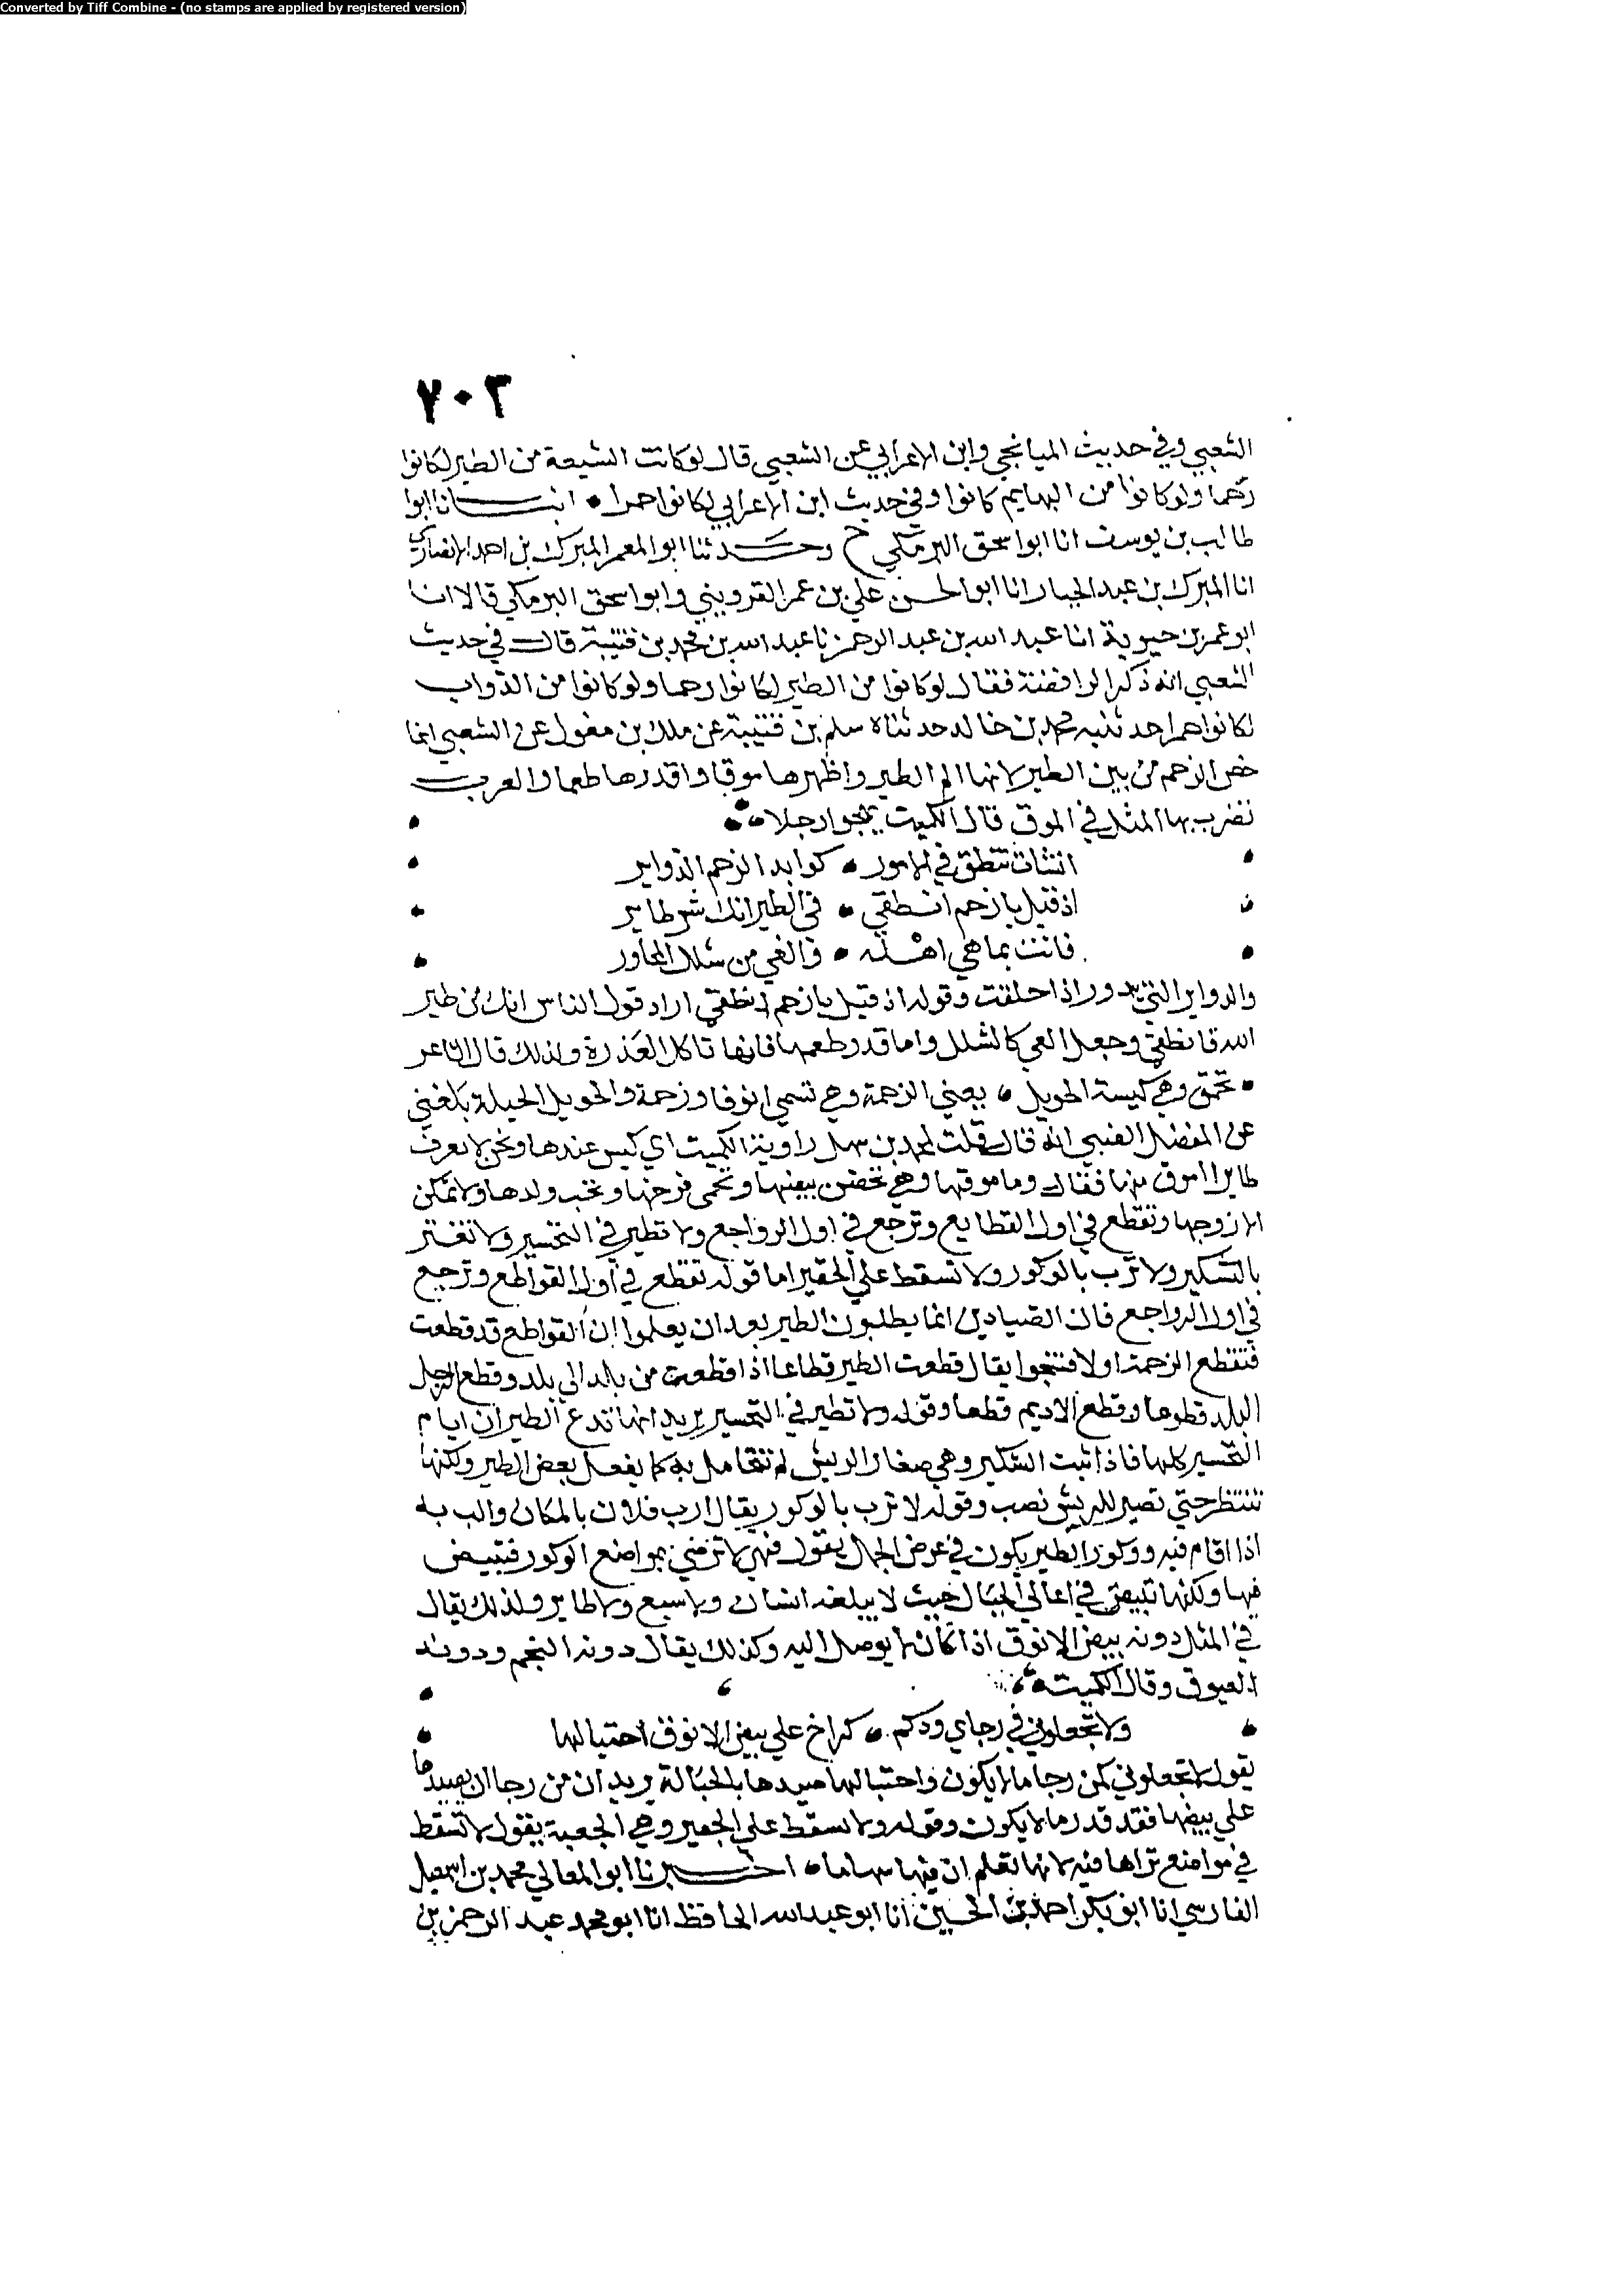 Converted by Tiff Combine - (no stamps are applied by registered version)
٧٠٣
الشعبي وفي حديث الميانجي وابن الاعرابي عن الشعبي قال لو كانت الشيعة من الطير لكانوا
رخما ولو كانوا من البهايم كانوا وفي حديث ابن الاعرابي لكانوا حمرا • انبــانا ابوا
طالب بن يوسف انا ابوا سحق البرمكي ح وحــدثنا ابو المعمر المبرك بن احمد الانصاري
انا المبرك بن عبد الجبار انا ابوا الحسن علي بن عمر القزويني وابوا سحق البرمكي قالا انا
ابو عمر بن حيوية انا عبد الله بن عبد الرحمن نا عبد الله بن محمد بن قتيبة قال في حديث
الشعبي انه ذكر الرافضة فقال لو كانوا من الطير لكانوا رخما ولو كانوا من الدواب
لكانوا حمرا حدثنيه محمد بن خالد حدثناه سلم بن قتيبة عن ملك بن مغول عن الشعبي انما
خص الرخم من بين الطير لانها الم الطير واظهرها موقا واقدرها طعما والعرب
تضرب بها المثل في الموق قال الكميت يهجوا رجلا
انشات تنطق في الامور • كوابد الرخم الدواير
اذ قيل يا رخم انطقي • في الطير انك شر طاير
فاتت بما هي اهله • والغي من شلل المحاور
والدواير التي تدور اذا حلقت وقوله اذ قيل يا رخم انطقي اراد قول الناس انك من طير
الله فانطقي وجعل العي كالشلل واما قدر طعمها فانها تاكل العذرة ولذلك قال الشاعر
• تحمق وهي كيسة الحويل • يعني الرخمة وهي تسمى انوقا ورخمة والحويل الحيلة بلغني
عن المفضل الضبي انه قال قلت لمحمد بن سهل راوية الكميت اي كيس عندها ونحن لا نعرف
طايرا اموق منها فقال وما موقها وهي تحضن بيضها وتحمى فرخها وتحب ولدها ولا تمكن
الا زوجها وتقطع في اول القطايع وترجع في اول الرواجع ولا تطير في التحسير ولا تغتر
بالشكير ولا ترب بالوكور ولا تسقط علي الجفير اما قوله تقطع في اول القواطع وترجع
في اول الرواجع فان الصيادين انما يطلبون الطير بعد ان يعلموا ان القواطع قد قطعت
فتقطع الرخمة اولا فتنجوا يقال قطعت الطير قطاعا اذا قطعت من بلد الى بلد وقطع الرجل
البلد قطوعا وقطع الاديم قطعا وقوله ولا تطير في التحسير يريد انها تدع الطيران ايام
التحسير كلها فاذا نبت الشكير وهي صغار الريش لم تتحامل به كما يفعل بعض الطير ولكنها
تنتظر حتي تصير الريش قصب وقوله لا ترب بالوكور يقال ارب فلان بالمكان والب به
اذا اقام فيه ووكور الطير يكون في عرض الجبال يقول فهي لا ترضي بمواضع الوكور فتبيض
فيها ولكنها تبيض في اعالي الجبال حيث لا يبلغه انسان ولا سبع ولا طاير ولذلك يقال
في المثل دونه بيض الانوق اذا كان لا يوصل اليه وكذلك يقال دونه النجم ودونه
العيوق وقال الكميت
ولا تجعلوني في رجاي ودكم • كراج علي بيض الانوق احتبالها
يقول لا تجعلوني كمن رجا ما لا يكون واحتبالها صيدها بالحبالة يريد ان من رجا ان يصيدها
علي بيضها فقد قدر ما لا يكون وقوله ولا تسقط علي الجفير وهي الجعبة يقول لا تسقط
في مواضع تراها فيه لانها تعلم ان فيها سهاما • اخــبرنا ابوا المعالي محمد بن اسمعيل
الفارسي انا ابو بكر احمد بن الحسين انا ابو عبد الله الحافظ انا ابو محمد عبد الرحمن بن